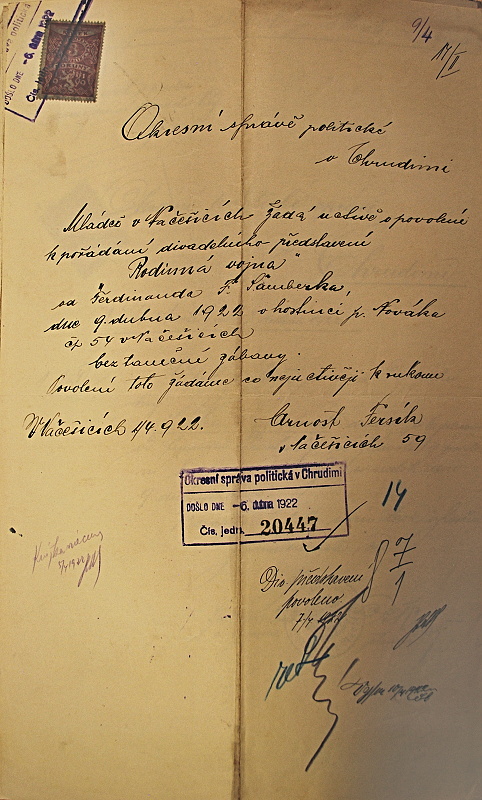 DOŠLO DNE -6. dubna 1922
9/4
Okresní správě politické
v Chrudimi
Mládež v Načešicích žádá uctivě o povolení
k pořádání divadelního představení
"Rodinná vojna"
od Ferdinanda F. Šamberka,
dne 9. dubna 1922 v hostinci p. Nováka
čp 54 v Načešicích
bez taneční zábavy.
Povolení toto žádáme co nejuctivěji k rukoum
V Načešicích 4/4.922.
Arnošt Tersík
v Načešicích 59
Okresní správa politická v Chrudimi
DOŠLO DNE -6. dubna 1922
Čís. jedn. 20447
14
7
1
Div. představení
povoleno
7/4 1922